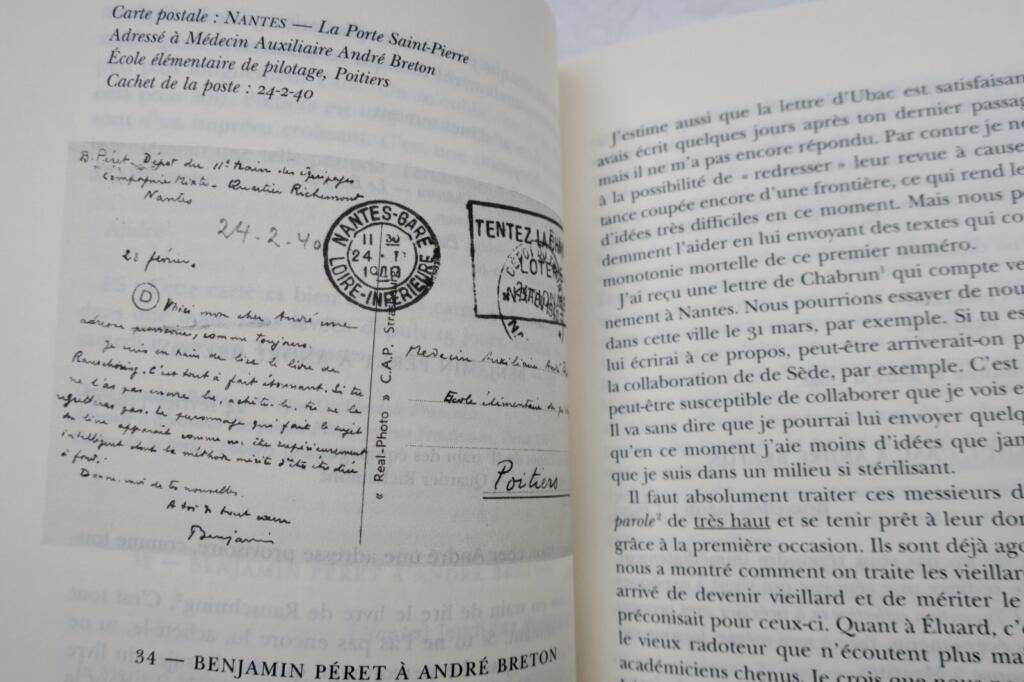 Carte postale : NANTES — La Porte Saint-Pierre
Adressé à Médecin Auxiliaire André Breton
École élémentaire de pilotage, Poitiers
Cachet de la poste : 24-2-40
B. Péret. Dépôt du 11e train des équipages
Compagnie Mixte. Quartier Richemont
Nantes
24-2-40
23 février.
D
Voici mon cher André une
adresse provisoire, comme toujours.
Je suis en train de lire le livre de
Rauschning. C'est tout à fait étonnant. Si tu
ne l'as pas encore lu, achète-le, tu ne le
regretteras pas. Le personnage qui fait le sujet
du livre apparaît comme un être supérieurement
intelligent dont la méthode mérite d'être étudiée
à fond.
Donne-moi de tes nouvelles.
A toi de tout cœur
Benjamin
NANTES-GARE
11
24 -
LOIRE-INFÉRIEURE
TENTEZ
LOTERIE
« Real-Photo » C.A.P.
Médecin Auxiliaire
École élémentaire de
Poitiers
34 — BENJAMIN PÉRET À ANDRÉ BRETON
J'estime aussi que la lettre d'Ubac est satisfaisan
avais écrit quelques jours après ton dernier passag
mais il ne m'a pas encore répondu. Par contre je ne
à la possibilité de « redresser » leur revue à cause
tance coupée encore d'une frontière, ce qui rend le
d'idées très difficiles en ce moment. Mais nous p
demment l'aider en lui envoyant des textes qui co
monotonie mortelle de ce premier numéro.
J'ai reçu une lettre de Chabrun1 qui compte ve
nement à Nantes. Nous pourrions essayer de nou
dans cette ville le 31 mars, par exemple. Si tu es
lui écrirai à ce propos, peut-être arriverait-on p
la collaboration de de Sède, par exemple. C'est
peut-être susceptible de collaborer que je vois e
Il va sans dire que je pourrai lui envoyer quelq
qu'en ce moment j'aie moins d'idées que jam
que je suis dans un milieu si stérilisant.
Il faut absolument traiter ces messieurs d
parole2 de très haut et se tenir prêt à leur don
grâce à la première occasion. Ils sont déjà ago
nous a montré comment on traite les vieillar
arrivé de devenir vieillard et de mériter le
préconisait pour ceux-ci. Quant à Éluard, c'é
le vieux radoteur que n'écoutent plus mai
académiciens chenus. Je crois que nous